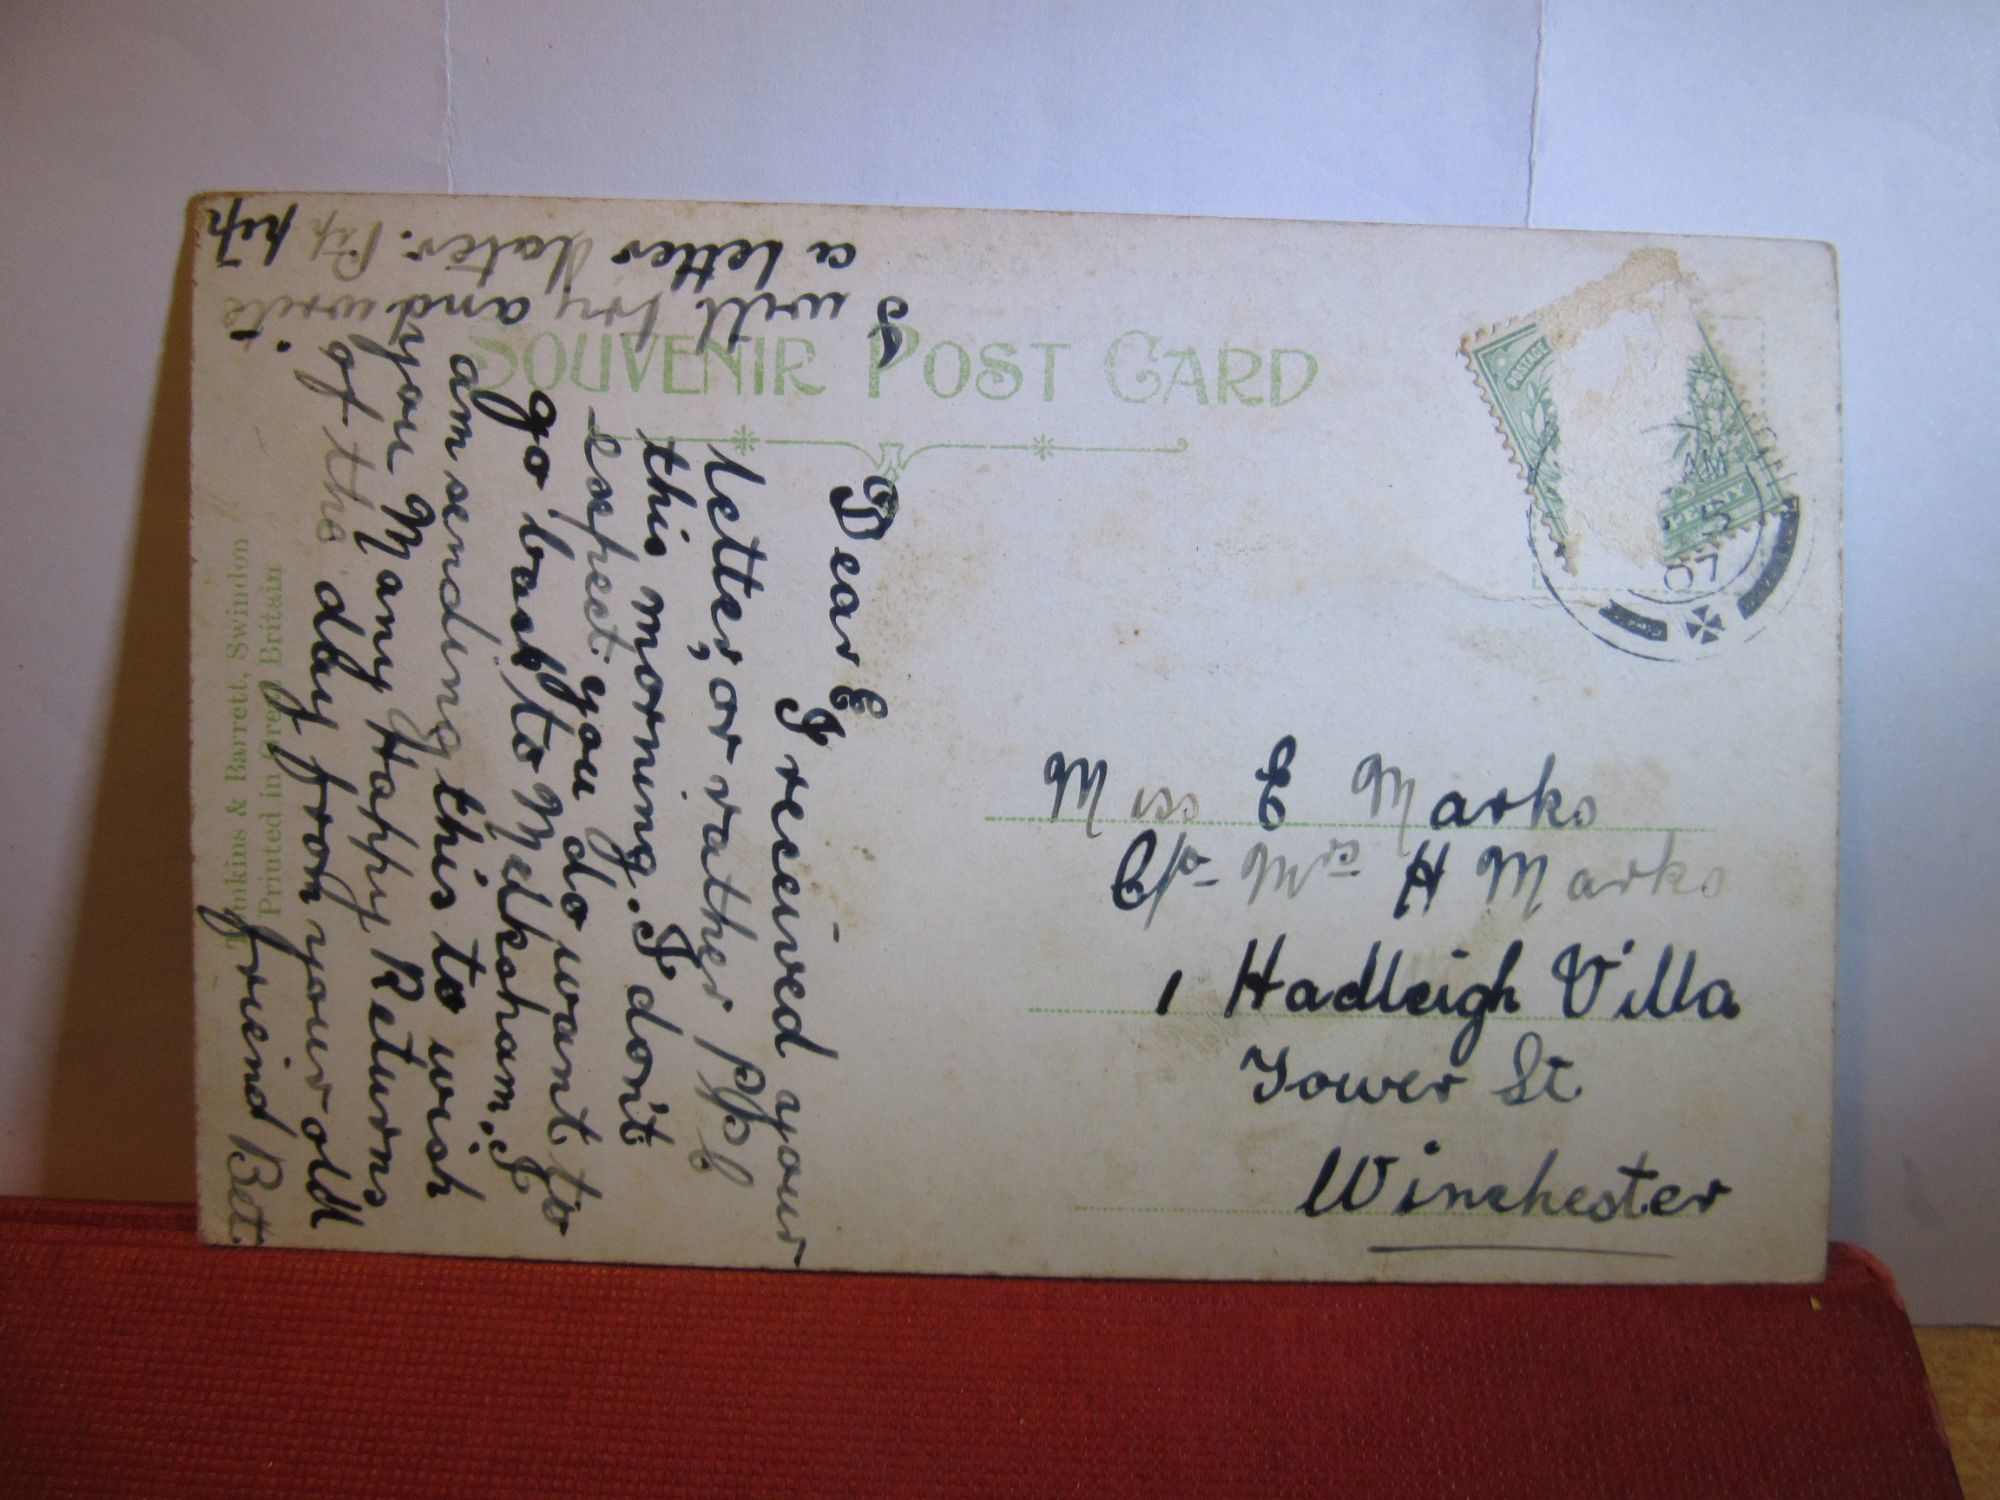 SOUVENIR POST CARD
POSTAGE
PENNY
AM
07
Dear E
I received your
letter, or rather P/C
this morning. I don't
expect you do want to
go back to Melksham. I
am sending this to wish
you Many Happy Returns
of the day from your old
freind Bet.
I will try and write
a letter later. Pip pip
Miss E Marks
C/o Mrs H Marks
1 Hadleigh Villa
Tower St
Winchester
& Barrett, Swindon
Printed in Great Britain